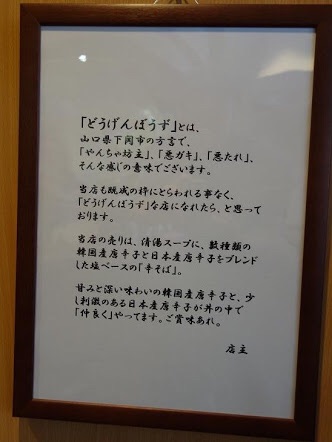 「どうげんぼうず」とは、
山口県下関市の方言で、
「やんちゃ坊主」、「悪ガキ」、「悪たれ」、
そんな感じの意味でございます。
当店も既成の枠にとらわれる事なく、
「どうげんぼうず」な店になれたら、と思って
おります。
当店の売りは、清湯スープに、数種類の
韓国産唐辛子と日本産唐辛子をブレンド
した塩ベースの「辛そば」。
甘みと深い味わいの韓国産唐辛子と、少
し刺激のある日本産唐辛子が丼の中で
「仲良く」やってます。ご賞味あれ。
店主